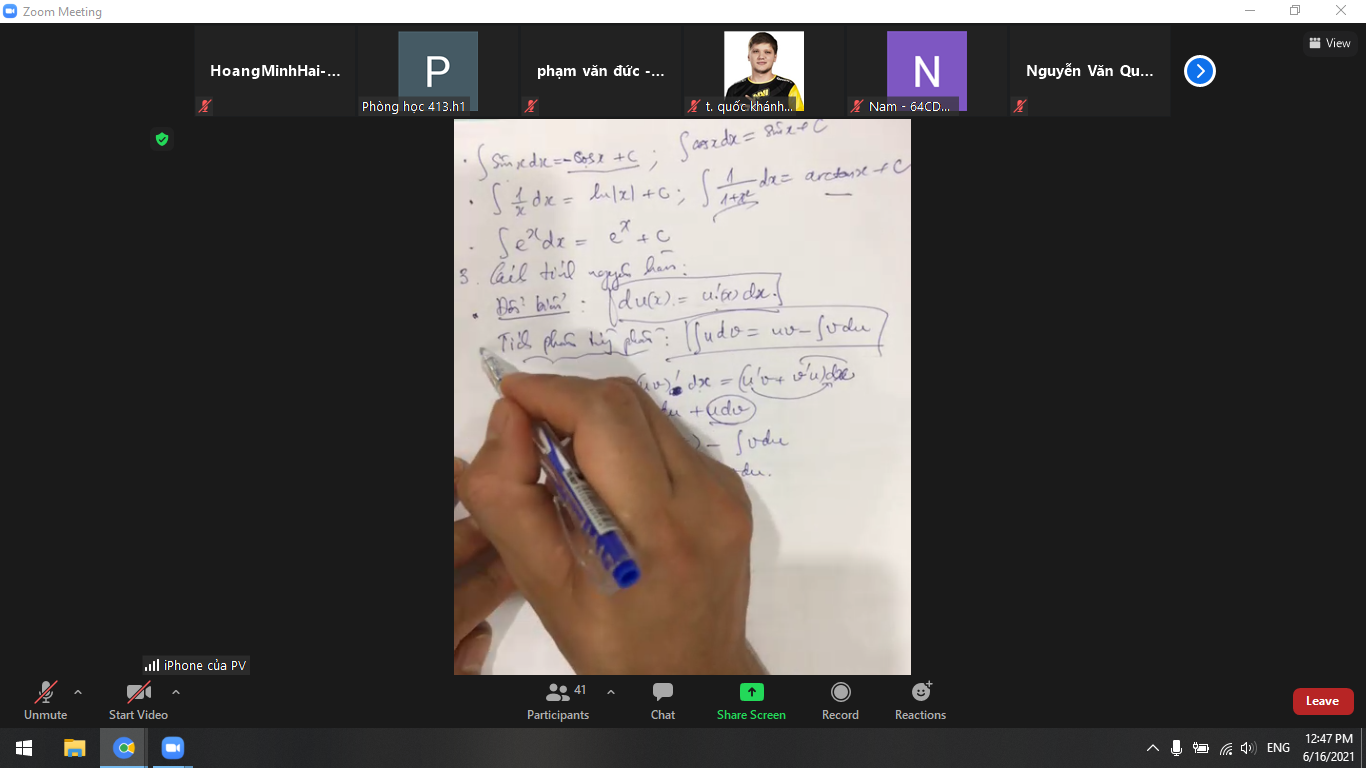 Zoom Meeting
HoangMinhHai-...
P
Phòng học 413.h1
phạm văn đức -...
t. quốc khánh...
N
Nam - 64CD...
Nguyễn Văn Qu...
View
. ∫ sin x dx = -cos x + C ; ∫ cos x dx = sin x + C
. ∫ 1/x dx = ln|x| + C ; ∫ 1/(1+x²) dx = arctan x + C
- ∫ e^x dx = e^x + C
3. Cách tính nguyên hàm:
. Đổi biến : du(x) = u'(x) dx.
Tích phân từng phần : ∫ u dv = uv - ∫ v du
(uv)' dx = (u'v + v'u) dx
du + u dv
) - ∫ v du
v du.
iPhone của PV
Unmute
Start Video
41
Participants
Chat
Share Screen
Record
Reactions
Leave
ENG
12:47 PM
6/16/2021